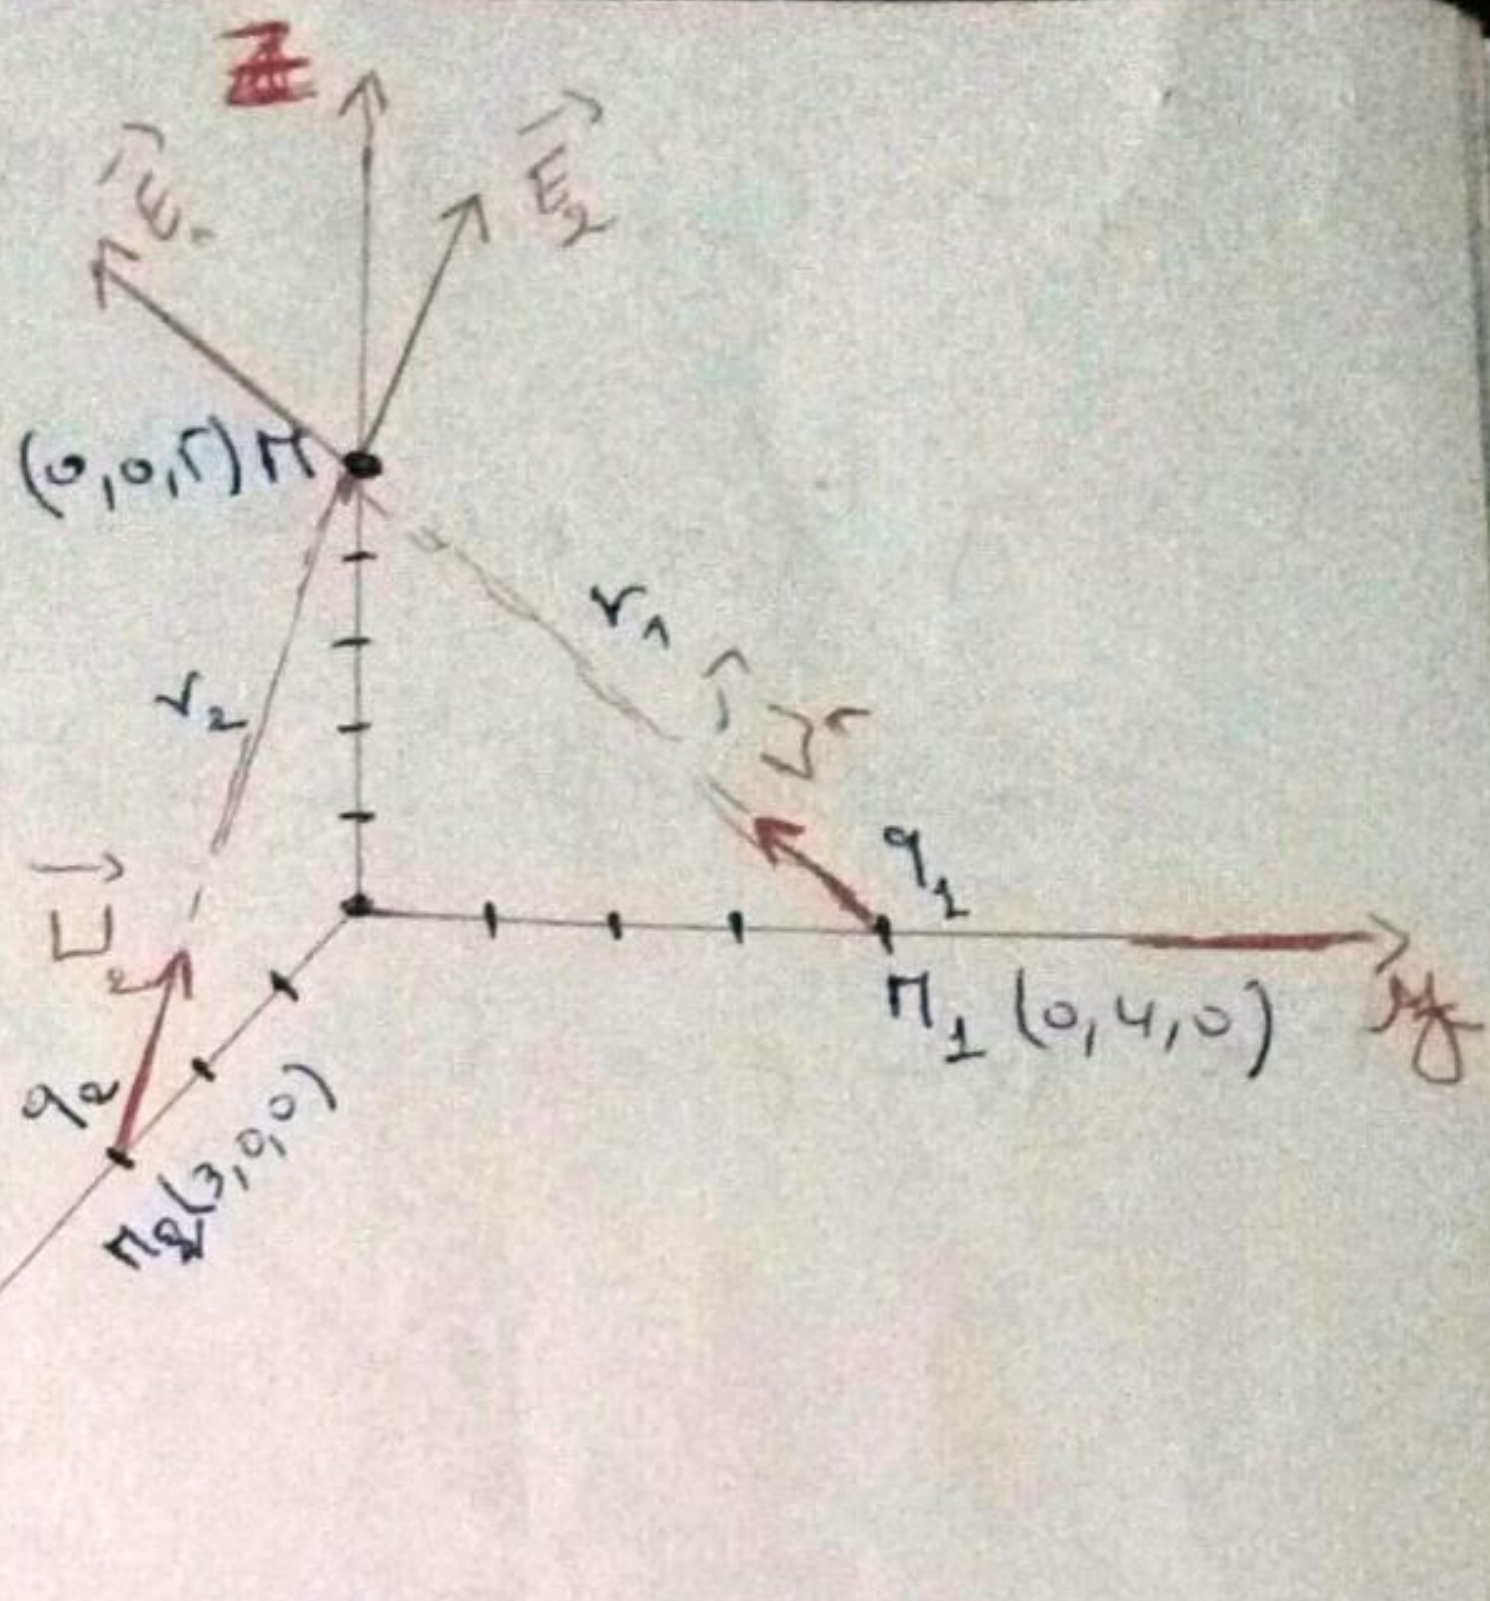 Z
E₁
E₂
(0,0,5) M
r₁
r₂
U₁
U₂
q₁
M₁ (0,4,0)
y
q₂
M₂(3,0,0)